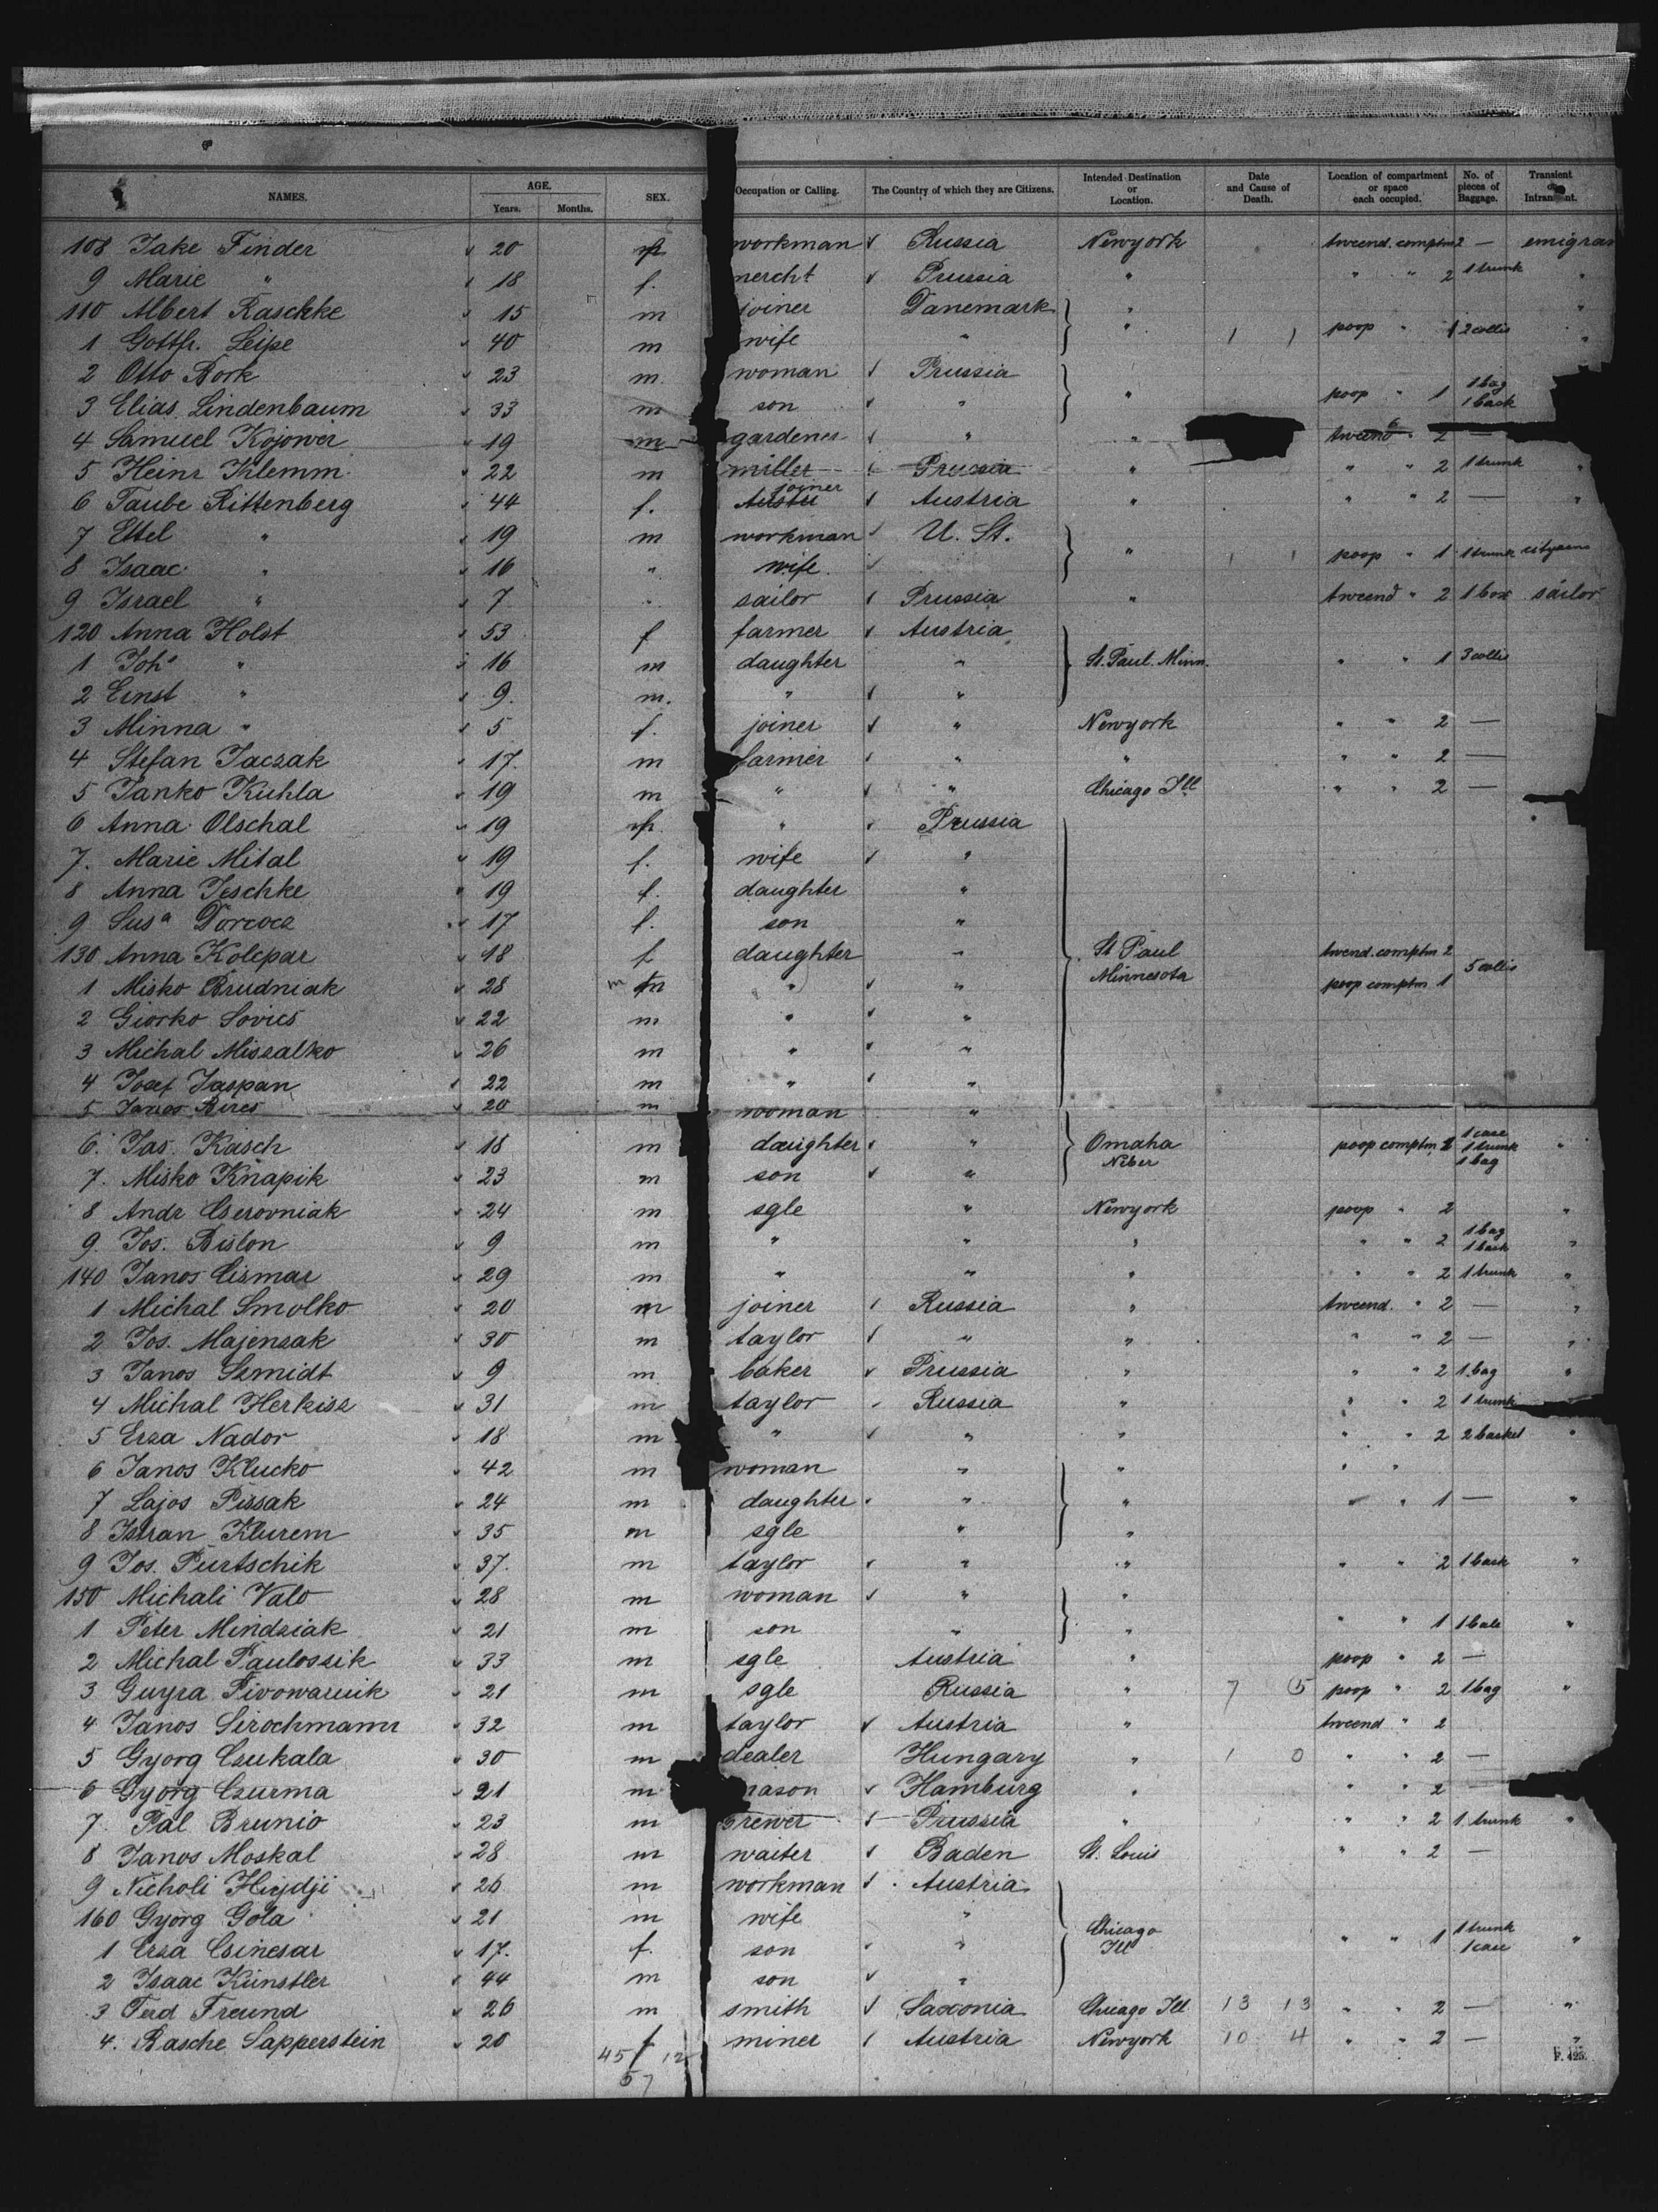 NAMES. AGE. Years. Months. SEX. Occupation or Calling. The Country of which they are Citizens. Intended Destination or Location. Date and Cause of Death. Location of compartment or space each occupied. No. of pieces of Baggage. Transient or
108 Jake Finder 20 workman Russia Newyork tweend. comptm 2 —
9 Marie " 18 f. mercht Prussia " " " 2 1 trunk "
110 Albert Raschke 15 m joiner Danemark " "
1 Gottfr. Leipe 40 m wife " " 1 1 poop " 1 2 collis "
2 Otto Bork 23 m woman Prussia
3 Elias Lindenbaum 33 m son " " poop " 1 1 bag 1 back
4 Samuel Kojower 19 m gardener " " tweend " 2 —
5 Heinr Klemm 22 m miller Prussia " " " 2 1 trunk "
6 Taube Rittenberg 44 f. joiner Austria " " " 2 — "
7 Ettel " 19 m workman U. St.
8 Isaac " 16 " wife " 1 1 poop " 1 1 trunk
9 Israel " 7 " sailor Prussia " tweend " 2 1 box sailor
120 Anna Holst 53 f farmer Austria
1 Joh " 16 m daughter " St. Paul. Minn. " " 1 3 collis
2 Ernst " 9 m. " "
3 Minna " 5 f. joiner " Newyork " " 2 —
4 Stefan Jaczak 17. m farmer " " " " 2 —
5 Janko Kuhla 19 m " " Chicago Ill " " 2 —
6 Anna Olschal 19 " Prussia
7. Marie Mital 19 f. wife "
8 Anna Jeschke 19 f. daughter "
9 Sus a Dorcocz 17 f. son "
130 Anna Kolcpar 18 f daughter " St Paul Minnesota twend. comptm 2
1 Misko Brudniak 28 m " " poop comptm 1 5 collis
2 Giorko Sovics 22 m " "
3 Michal Miszalko 26 m " "
4 Josef Jaspan 22 m " "
5 Janos Beres 20 m woman "
6. Jas. Kasch 18 m daughter " Omaha Neber poop comptm 2 1 case 1 trunk 1 bag "
7. Misko Knapik 23 m son "
8 Andr Cserovniak 24 m sgle " Newyork poop " 2 "
9. Jos. Bislon 9 m " " " " " 2 1 bag 1 back "
140 Janos Cismar 29 m " " " " " 2 1 trunk "
1 Michal Smolko 20 m joiner Russia " tweend. " 2 — "
2 Jos. Majenzak 30 m taylor " " " " 2 — "
3 Janos Szmidt 9 m baker Prussia " " " 2 1 bag "
4 Michal Herkisz 31 m taylor Russia " " " 2 1 trunk
5 Erza Nador 18 m " " " " " 2 2 basket "
6 Janos Klucko 42 m woman " " " "
7 Lajos Pissak 24 m daughter " " " " 1 — "
8 Istran Klurem 35 m sgle " "
9 Jos. Purtschik 37. m taylor " " " " 2 1 back "
150 Michali Valo 28 m woman " "
1 Peter Mindziak 21 m son " " " " 1 1 bale "
2 Michal Paulossik 33 m sgle Austria " poop " 2 —
3 Guyra Pivowarnik 21 m sgle Russia " 7 5 poop " 2 1 bag "
4 Janos Sirochmann 32 m taylor Austria " tweend " 2
5 Gyorg Czukala 30 m dealer Hungary " 1 0 " " 2 —
6 Gyorg Czurma 21 m mason Hamburg " " " 2 —
7. Pal Brunio 23 m brewer Prussia " " " 2 1 trunk "
8 Janos Moskal 28 m waiter Baden St. Louis " " 2 —
9 Nicholi Hujdji 26 m workman Austria
160 Gyorg Gola 21 m wife "
1 Erza Csinesar 17. f. son " Chicago Ill " " 1 1 trunk 1 case "
2 Isaac Künstler 44 m son "
3 Ferd Freund 26 m smith Saxonia Chicago Ill 13 13 " " 2 — "
4. Basche Sapperstein 20 f miner Austria Newyork 10 4 " " 2 — "
45 / 12
57
F. 425.